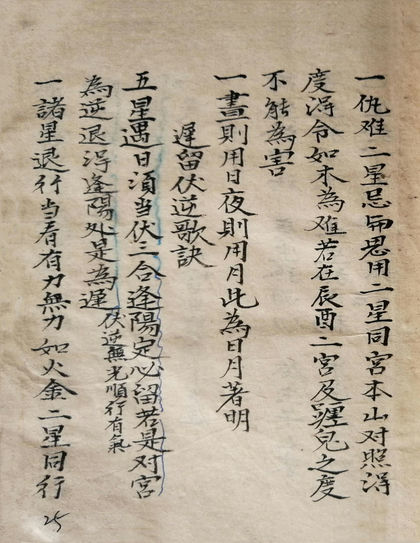 一仇难二星忌而思用二星同宫本山对照得
度得令如木為难若在辰酉二宫及躔皃之度
不能為害
一晝則用日夜則用月此為日月著明
遲留伏逆歌訣
五星遇日須当伏三合逢陽定必留若是对宫
為逆退得逢陽处是為遲伏逆無光順行有氣
一諸星退行当看有力無力如火金二星同行
25